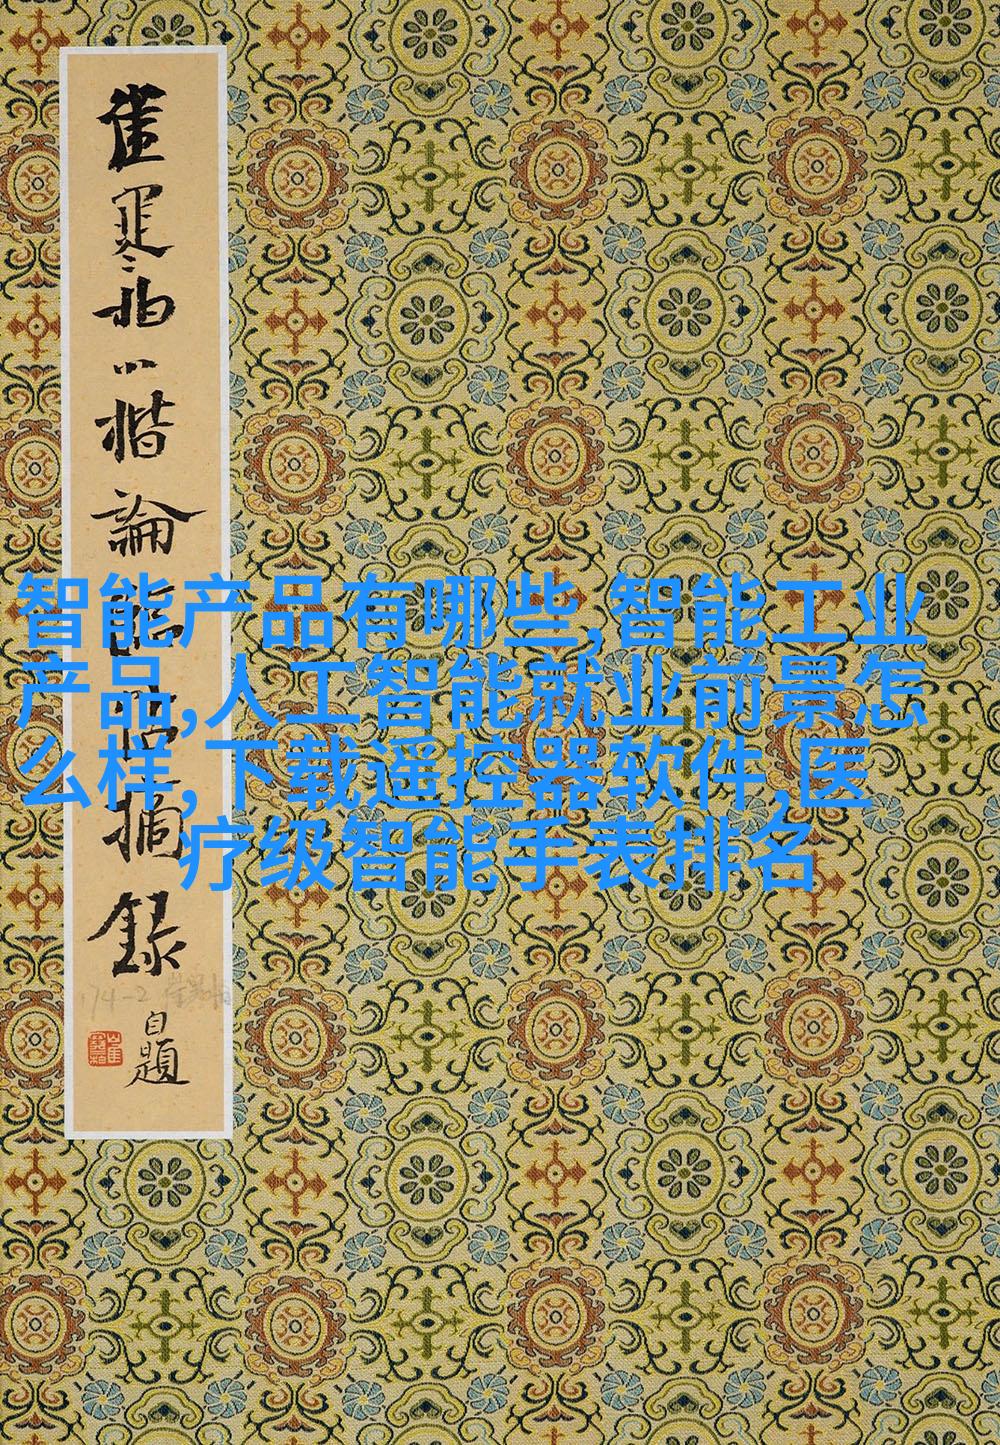 崔寒柏小楷論臨帖摘錄
自題
智能产品有哪些,智能工业
产品,人工智能就业前景怎
么样,下载遥控器软件,医
疗级智能手表排名